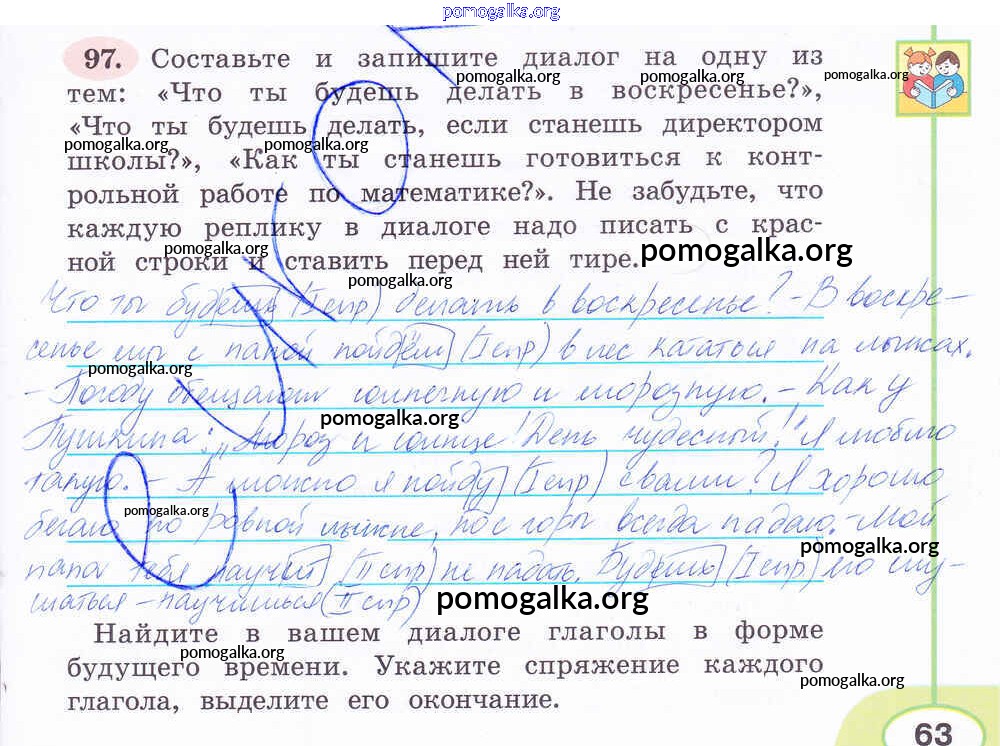 pomogalka.org
97. Составьте и запишите диалог на одну из
pomogalka.org pomogalka.org pomogalka.org
тем: «Что ты будешь делать в воскресенье?»,
«Что ты будешь делать, если станешь директором
pomogalka.org pomogalka.org
школы?», «Как ты станешь готовиться к конт-
рольной работе по математике?». Не забудьте, что
каждую реплику в диалоге надо писать с крас-
pomogalka.org pomogalka.org
ной строки и ставить перед ней тире.
Что ты будешь (I спр) делать в воскресенье? - В воскре-
сенье мы с папой пойдём (I спр) в лес кататься на лыжах.
pomogalka.org
- Погоду обещали солнечную и морозную. - Как у
pomogalka.org
Пушкина: „Мороз и солнце! День чудесный!" Я люблю
такую. - А можно я пойду (I спр) с вами? Я хорошо
pomogalka.org
бегаю по ровной лыжне, но с горы всегда падаю. - Мой
pomogalka.org
папа тебя научит (II спр) не падать. Будешь (I спр) его слу-
шаться - научишься (II спр)
pomogalka.org
Найдите в вашем диалоге глаголы в форме
pomogalka.org
будущего времени. Укажите спряжение каждого
pomogalka.org
глагола, выделите его окончание.
63